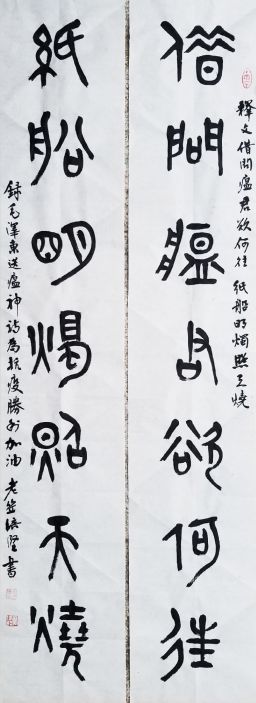 釋文借問瘟君欲何往 紙船明燭照天燒
借問瘟君欲何往
紙船明燭照天燒
録毛澤東送瘟神詩為抗疫勝利加油 老 書